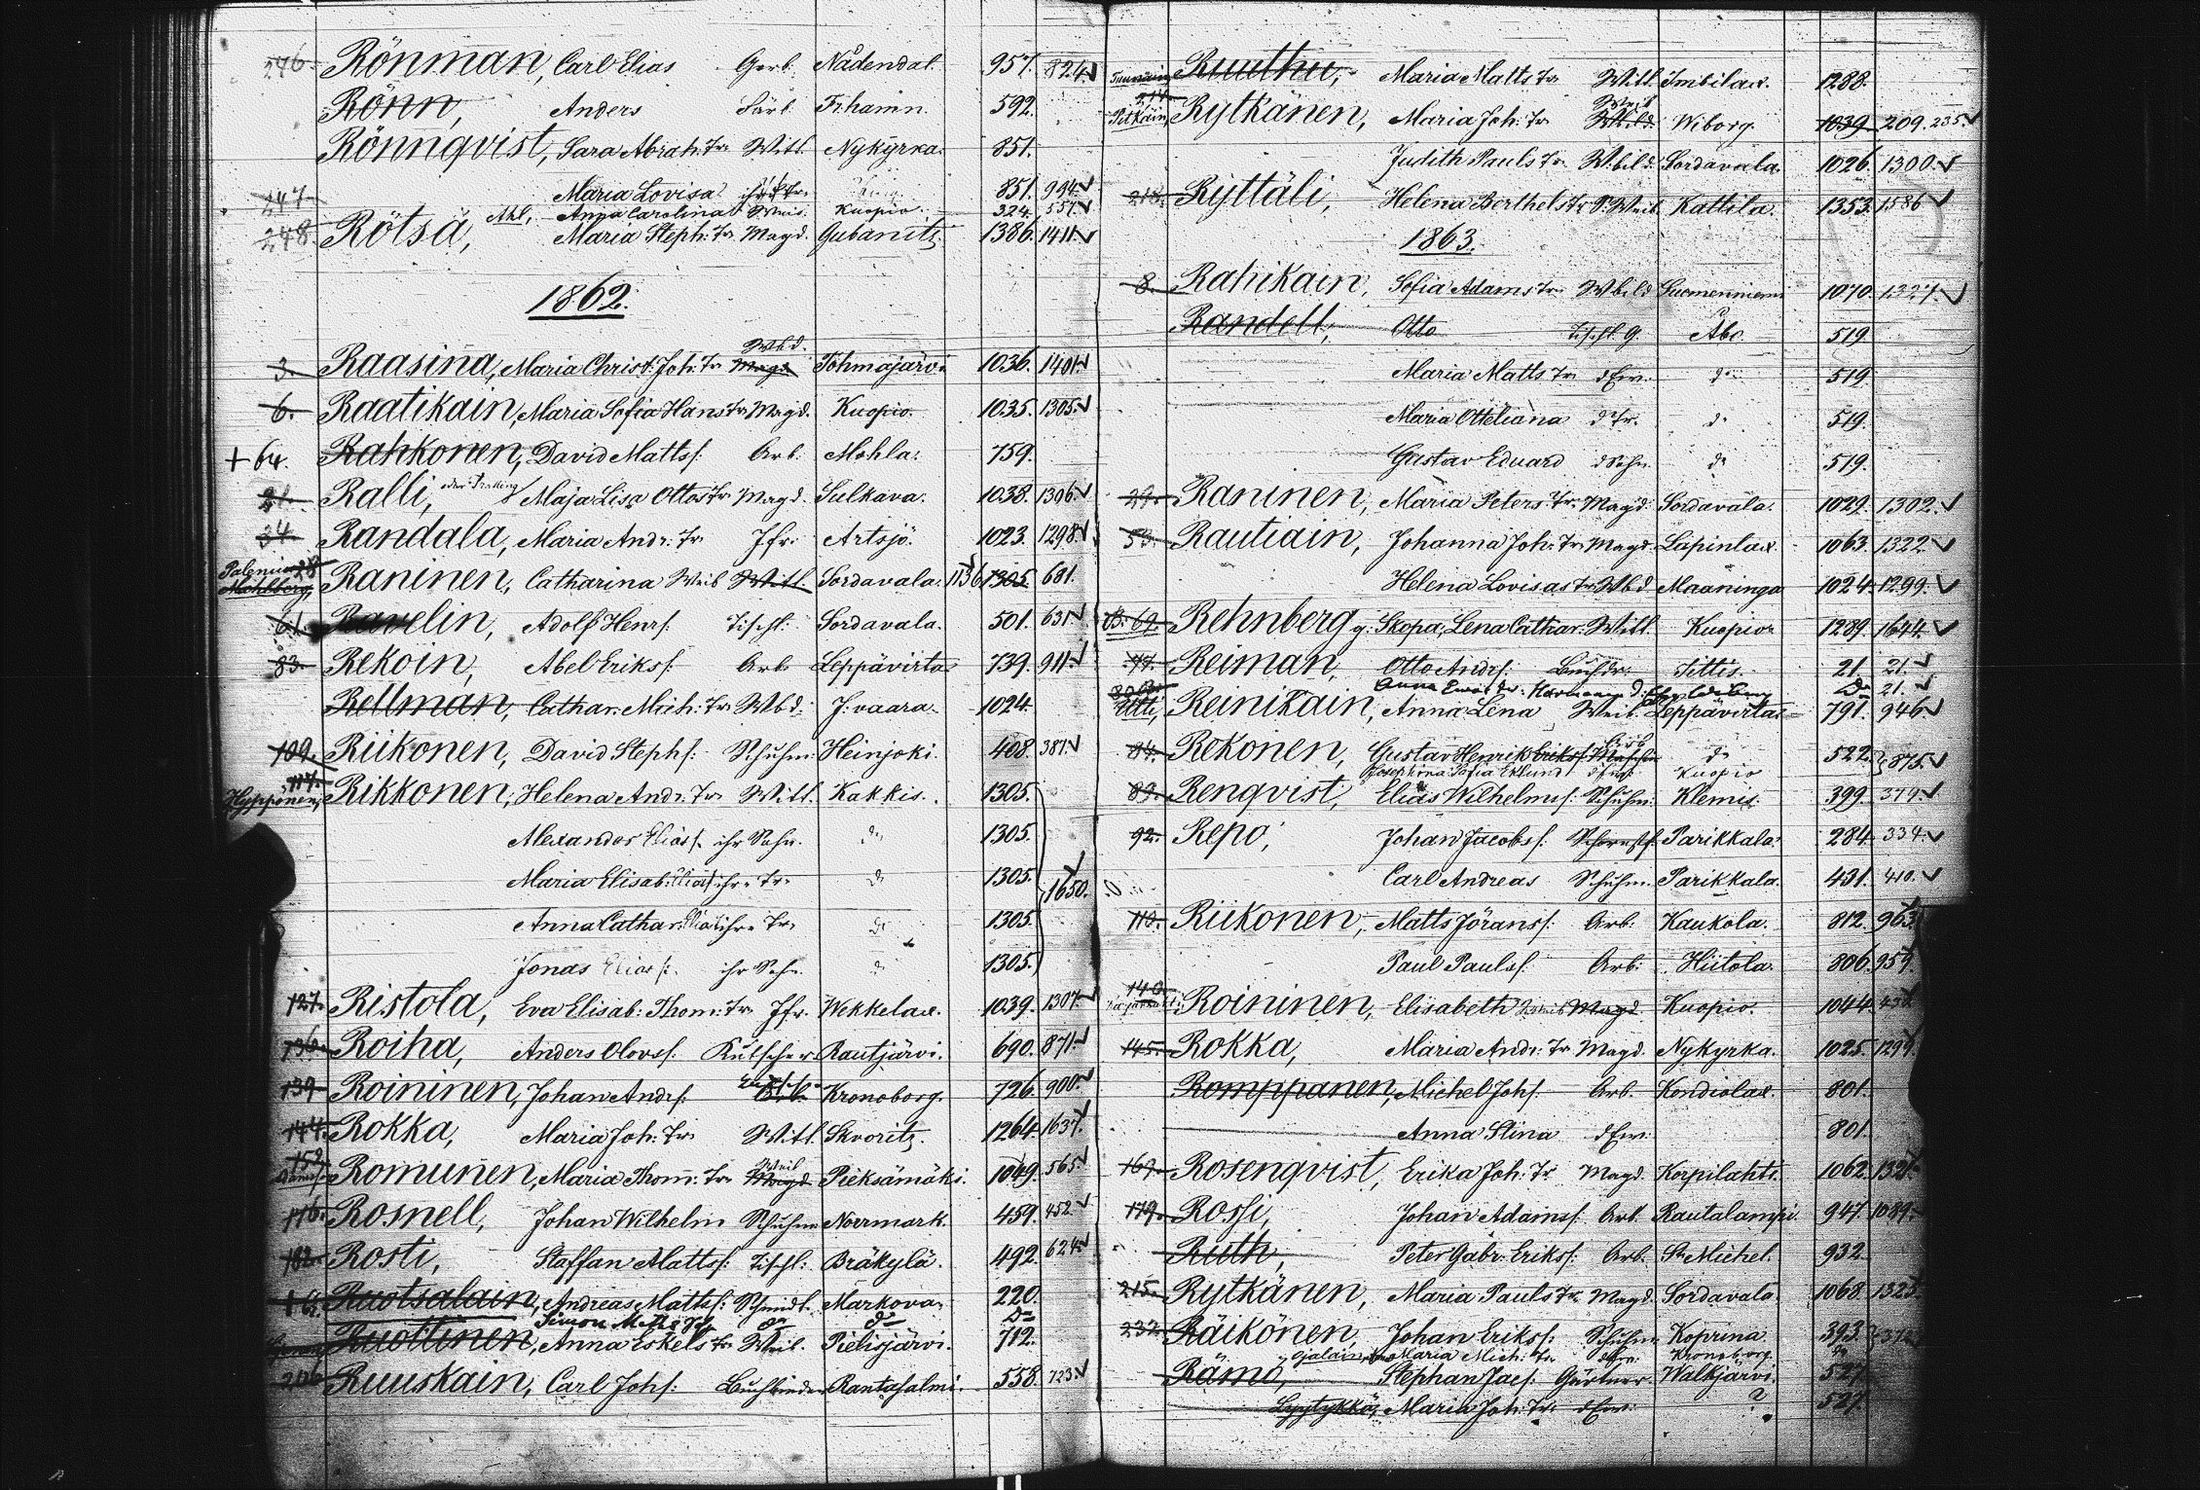 246. Rönman, Carl Elias Gerb. Nådendal. 957. 824.
Rönn, Anders Färb. Frhamn. 592.
Rönnqvist, Sara Abrah. Tr. Witt. Nykyrka. 851.
247. Maria Lovisa ihre Tr. 851. 994.
Anna Carolina Weib. Kuopio. 324. 557.
248. Rötsä, Maria Steph. Tr. Magd. Gubanitz. 1386. 1411.
1862.
Wbd.
3. Raasina, Maria Christ. Joh. Tr. Magd. Tohmajärvi 1036. 1401.
6. Raatikain, Maria Sofia Hans Tr. Magd. Kuopio. 1035. 1305.
+ 64. Rahkonen, David Mattsf. Arb. Mohla. 759.
21. Ralli, Maja Lisa Ottos Tr. Magd. Sulkava. 1038. 1306.
34. Randala, Maria Andr. Tr. Jfr. Artsjö. 1023. 1298.
Raninen, Catharina Weib Witt. Sordavala. 1136 1305. 681.
61. Ravelin, Adolf Henrf. Tischl. Sordavala. 501. 631.
83. Rekoin, Abel Eriksf. Arb. Leppävirta. 739. 911.
Rellman, Cathar. Mich. Tr. Wbd. J:vaara. 1024.
109. Riikonen, David Stephf. Schuhm. Heinjoki. 408. 387.
117. Hypponen, Rikkonen, Helena Andr. Tr. Witt. Kakkis. 1305.
Alexander Eliasf. ihr Sohn. do 1305.
Maria Elisab. Eliasf. ihre Tr. do 1305. 1650.
Anna Cathar. Elias ihre Tr. do 1305.
Jonas Eliasf. ihr Sohn. do 1305.
127. Ristola, Eva Elisab. Thom. Tr. Jfr. Wekkelax. 1039. 1307.
136. Roiha, Anders Olovsf. Kutscher Rautjärvi. 690. 871.
139. Roininen, Johan Andrf. Kronoborg. 726. 900.
144. Rokka, Maria Joh. Tr. Witt. Skvoritz. 1264. 1637.
152. Romunen, Maria Thom. Tr. Weib Magd. Pieksämäki. 1049. 565.
176. Rosnell, Johan Wilhelm Schuhm. Norrmark. 459. 452.
182. Rosti, Staffan Mattsf. Tischl. Bräkylä. 492. 624.
Ruotsalain, Andreas Mattsf. Schmidt. Markova. 220.
Ruottinen, Anna Eskels Tr. Weib. Pielisjärvi. 712.
206. Ruuskain, Carl Johf. Buchbinder Rantasalmi. 558. 723.
Ruuthu, Maria Matts Tr. Witt. Imbilax. 1288.
Pitkäin, Rytkänen, Maria Joh. Tr. Weib Wbild. Wiborg. 1039. 209. 235.
Judith Pauls Tr. Wbild. Sordavala. 1026. 1300.
218. Ryttäli, Helena Berthels Tr. S. Weib Kattila. 1353. 1586
1863.
8. Rahikain, Sofia Adams Tr. Wbild Suomenniemi 1070. 1327.
Randell, Otto Tischl. G. Åbo. 519.
Maria Matts Tr. d Frn. do 519.
Maria Otteliana d Tr. do 519.
Gustav Eduard d Sohn. do 519.
29. Raninen, Maria Peters Tr. Magd. Sordavala. 1029. 1302.
53. Rautiain, Johanna Joh. Tr. Magd. Lapinlax. 1063. 1322.
Helena Lovisas Tr. Wbd. Maaninga 1024. 1299.
69. Rehnberg g. Skopa, Lena Cathar. Witt. Kuopio 1289. 1644.
Reiman, Otto Andrf. Buchdr. Tittis. 21. 21.
do 21.
Reinikain, Anna Lena Weib. Leppävirta 791. 946.
84. Rekonen, Gustav Henrik Eriksf. do 522. 875.
Josephina Sofia Eklund d Frn. Kuopio
89. Renqvist, Elias Wilhelmsf. Schuhm. Klemis. 399. 379.
92. Repo, Johan Jacobsf. Schornstf. Parikkala. 284. 334.
Carl Andreas Schuhm. Parikkala. 431. 410.
110. Riikonen, Matts Jöransf. Arb. Kaukola. 812. 963.
Paul Paulsf. Arb. Hiitola. 806. 959.
140. Roininen, Elisabeth Weib Magd. Kuopio. 1044.
145. Rokka, Maria Andr. Tr. Magd. Nykyrka. 1025. 1299.
Romppanen, Michel Johf. Arb. Kondiolax. 801.
Anna Stina d Frn. 801.
169. Rosenqvist, Erika Joh. Tr. Magd. Korpilahti. 1062. 1321.
179. Rossi, Johan Adamsf. Arb. Rautalampi. 947. 1089.
Ruth, Peter Gabr. Eriksf. Arb. St Michel. 932.
215. Rytkänen, Maria Pauls Tr. Magd. Sordavala 1068. 1325.
232. Räikönen, Johan Eriksf. Schuhm. Koprina 393. 372.
Maria Mich. Tr. d Frn. Kronoborg. do
Rämö, Stephan Jacf. Gärtner Walkjärvi. 527.
Lyytykkä, Maria Joh. Tr. d Frn. ? 527.